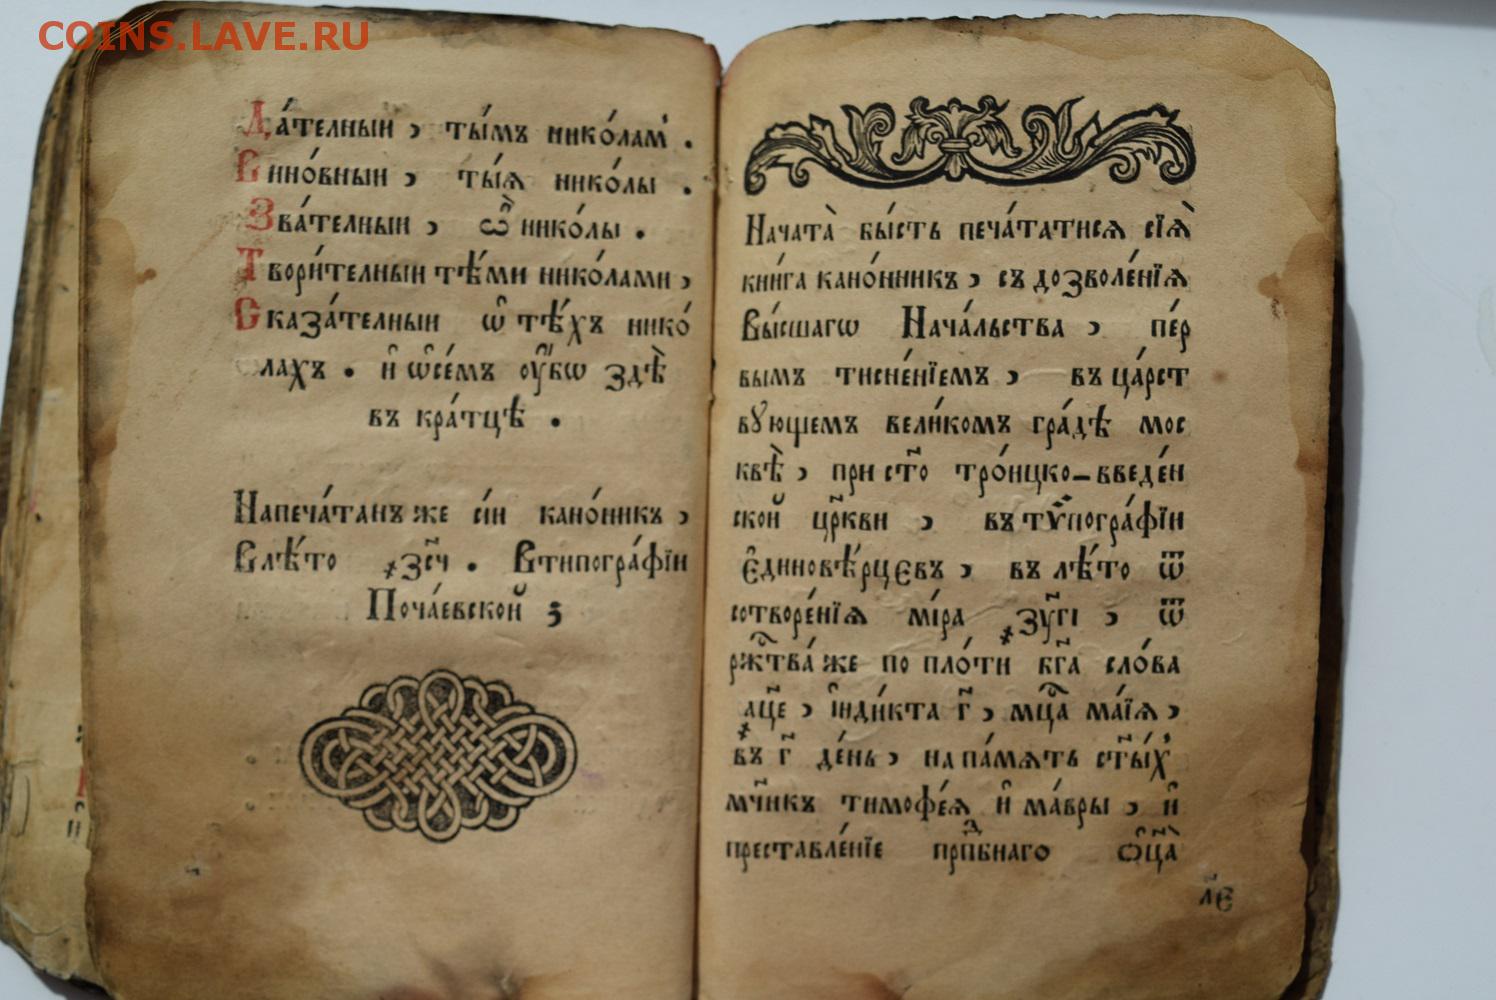 COINS.LAVE.RU
Да́телныи , ты́мъ нико́лам̾ .
Вино́вныи , ты́ѧ нико́лы .
Зва́телныи , ѽ нико́лы .
Твори́телныи тѣ́ми нико́лами ,
Сказа́телныи ѡ҆ тѣ́хъ нико́
лахъ . и҆ ѡ҆се́мъ ᲂу҆́бѡ здѣ̀
въ кра́тцѣ .
Напеча́танъ же сі́и кано́никъ ,
Влѣ́то ҂зсч҃ . Втипогра́фїи
Поча́евской ;
Начата̀ бы́сть печа́татисѧ сїѧ̀
кни́га кано́нникъ , съ дозволе́нїѧ
Вы́сшагѡ Нача́льства , пе́р
вымъ тисне́нїемъ , въ ца́рст
вꙋющемъ вели́комъ гра́дѣ мос
квѣ̀ , при ст҃о тро́ицко-введе́н
ской цр҃кви , въ тѷпогра́фїи
є҆диновѣ́рцєвъ , въ лѣ́то ѿ
сотворе́нїѧ мі́ра ҂зу҃гі , ѿ
ржⷭ҇тва́ же по пло́ти бг҃а сло́ва
҂аце҃ , і҆нди́кта г҃ , мцⷭ҇а ма́їѧ ,
въ г҃ де́нь , на па́мѧть ст҃ы́х̾
мч҃никъ тимофе́ѧ и҆ ма́вры , и҆
преставле́нїе прпⷣбнаго ѻ҆ц҃а̀
л҃є